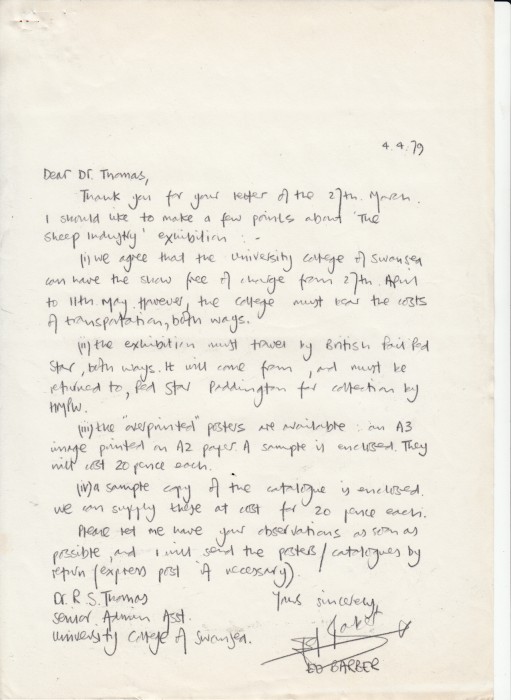 4.4.79
Dear Dr. Thomas,
Thank you for your letter of the 27th. March.
I should like to make a few points about 'The
Sheep Industry' exhibition :-
(i) we agree that the University College of Swansea
can have the show free of charge from 27th. April
to 11th. May. However, the college must bear the costs
of transportation, both ways.
(ii) the exhibition must travel by British Rail Red
Star, both ways. It will come from, and must be
returned to, Red Star Paddington for collection by
HMPW.
(iii) the "overprinted" posters are available: an A3
image printed on A2 paper. A sample is enclosed. They
will cost 20 pence each.
(iv) a sample copy of the catalogue is enclosed.
We can supply these at cost for 20 pence each.
Please let me have your observations as soon as
possible, and I will send the posters/catalogues by
return (express post if necessary).
Dr. R S. Thomas Yours sincerely,
Senior Admin Asst.
University College of Swansea.
ED BARBER